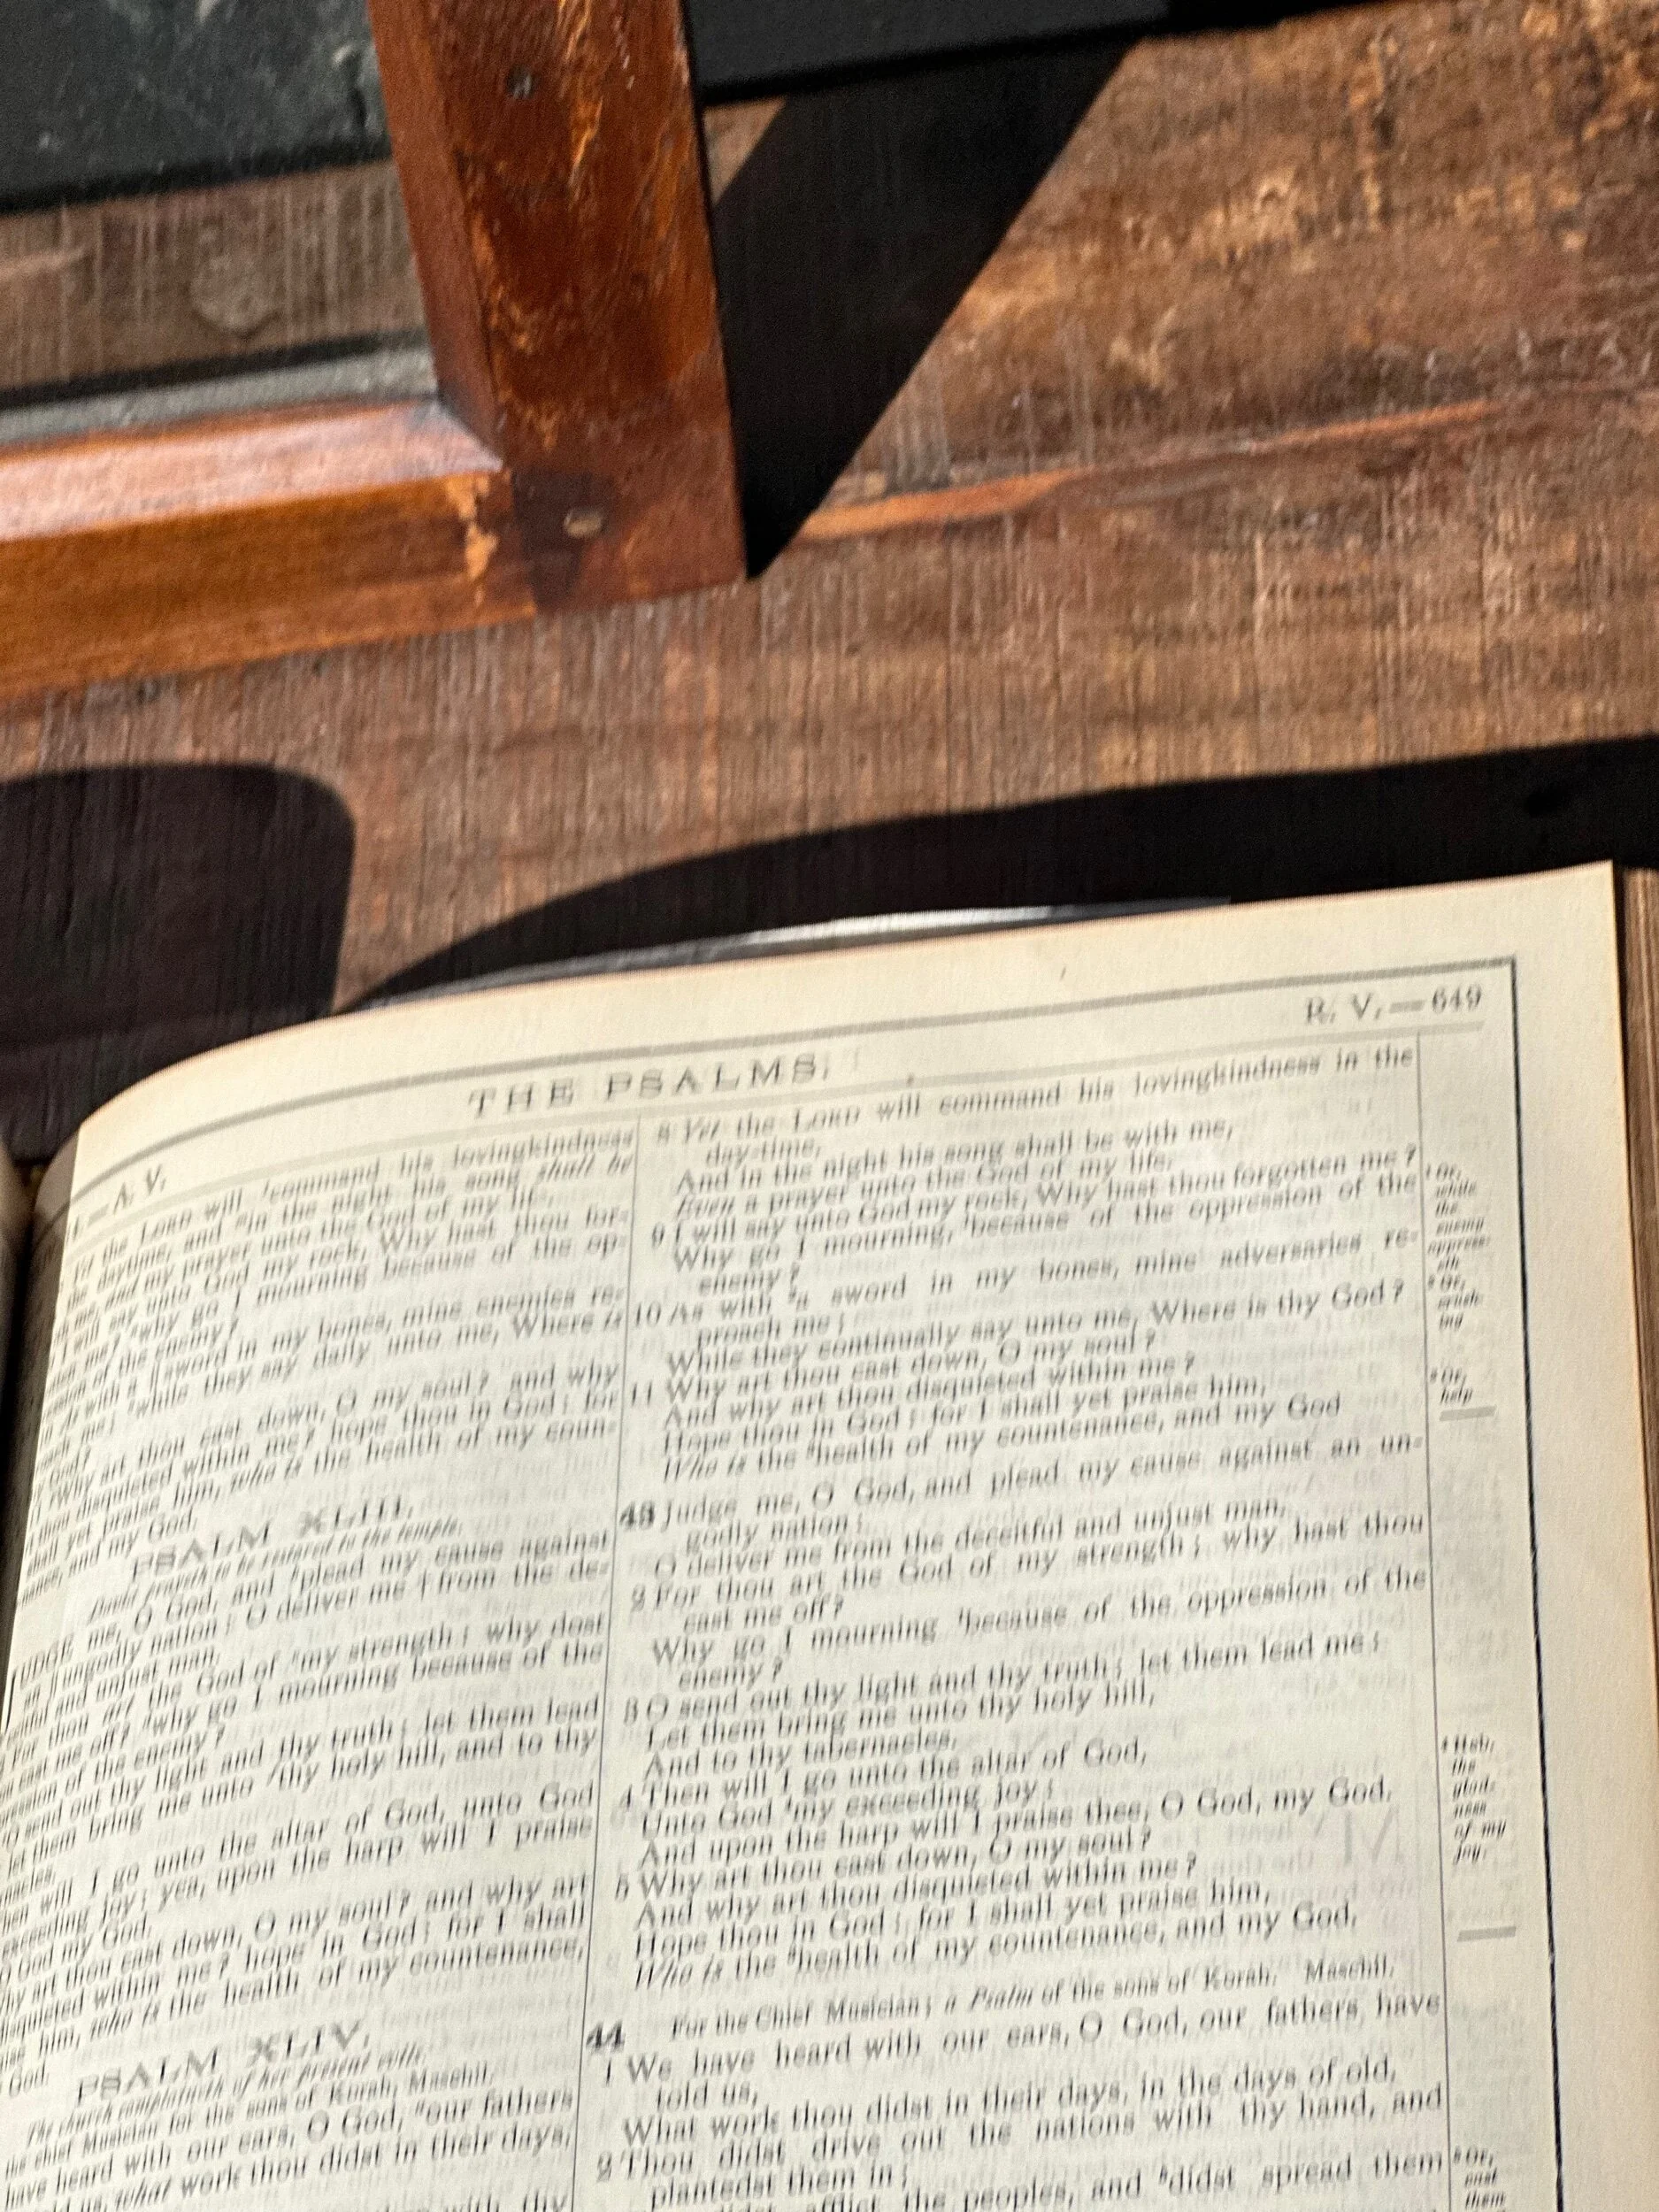 THE PSALMS.
R. V.—649
A. V.
the LORD will command his lovingkindness
the daytime, and in the night his song shall be
me, and my prayer unto the God of my life.
I will say unto God my rock, Why hast thou for-
me? why go I mourning because of the op-
of the enemy?
As with a sword in my bones, mine enemies re-
me; while they say daily unto me, Where is
God?
Why art thou cast down, O my soul? and why
thou disquieted within me? hope thou in God: for
shall yet praise him, who is the health of my coun-
and my God.
PSALM XLIII.
David prayeth to be restored to the temple.
JUDGE me, O God, and plead my cause against
an ungodly nation: O deliver me from the de-
and unjust man.
For thou art the God of my strength: why dost
cast me off? why go I mourning because of the
of the enemy?
O send out thy light and thy truth: let them lead
let them bring me unto thy holy hill, and to thy
will I go unto the altar of God, unto God
exceeding joy: yea, upon the harp will I praise
O God my God.
Why art thou cast down, O my soul? and why art
disquieted within me? hope in God: for I shall
him, who is the health of my countenance,
God.
PSALM XLIV.
The church complaineth of her present evils.
the chief Musician for the sons of Korah, Maschil.
have heard with our ears, O God, our fathers
us, what work thou didst in their days,
with thy
8 Yet the LORD will command his lovingkindness in the
day-time,
And in the night his song shall be with me,
Even a prayer unto the God of my life.
9 I will say unto God my rock, Why hast thou forgotten me?
Why go I mourning because of the oppression of the
enemy?
10 As with a sword in my bones, mine adversaries re-
proach me;
While they continually say unto me, Where is thy God?
11 Why art thou cast down, O my soul?
And why art thou disquieted within me?
Hope thou in God; for I shall yet praise him,
Who is the health of my countenance, and my God
43 Judge me, O God, and plead my cause against an un-
godly nation:
O deliver me from the deceitful and unjust man.
2 For thou art the God of my strength; why hast thou
cast me off?
Why go I mourning because of the oppression of the
enemy?
3 O send out thy light and thy truth; let them lead me:
Let them bring me unto thy holy hill,
And to thy tabernacles.
4 Then will I go unto the altar of God,
Unto God my exceeding joy:
And upon the harp will I praise thee, O God, my God.
5 Why art thou cast down, O my soul?
And why art thou disquieted within me?
Hope thou in God; for I shall yet praise him,
Who is the health of my countenance, and my God.
44 For the Chief Musician; a Psalm of the sons of Korah. Maschil.
1 We have heard with our ears, O God, our fathers have
told us,
What work thou didst in their days, in the days of old.
2 Thou didst drive out the nations with thy hand, and
plantedst them in;
didst afflict the peoples, and didst spread them
Or,
while
the
enemy
oppress-
eth
Or,
crush-
ing
Or,
help
Heb.
the
glad-
ness
of my
joy.
Or,
cast
them